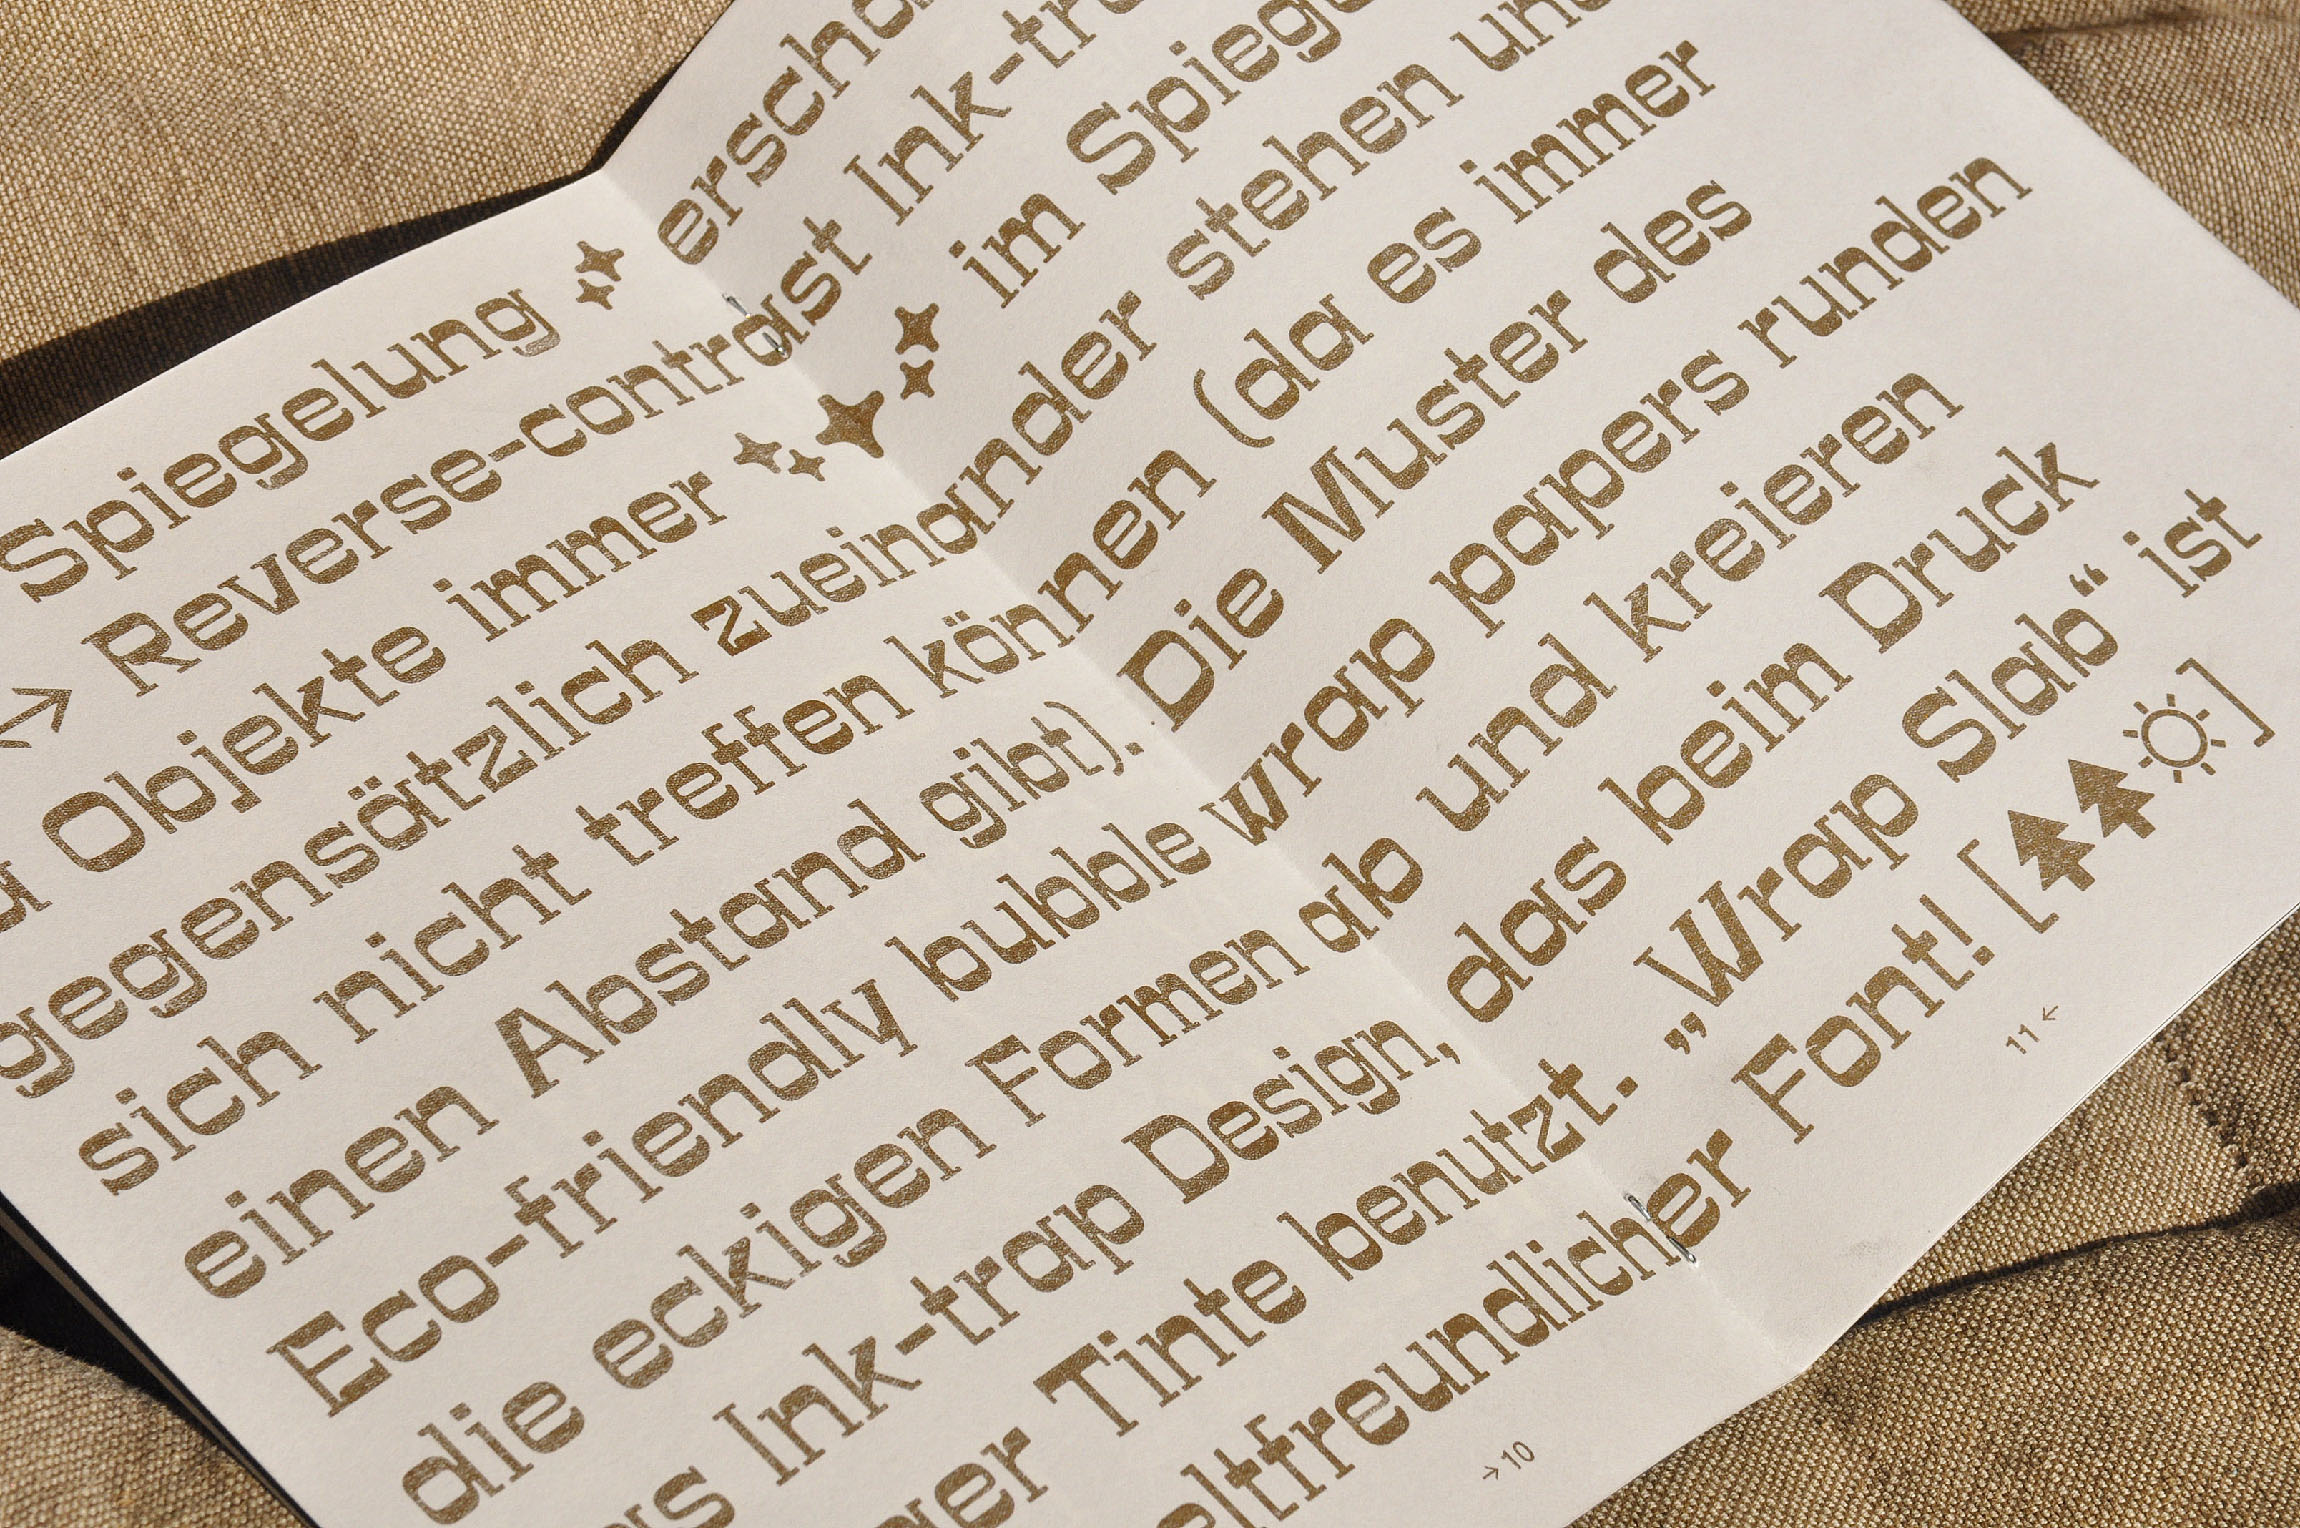 Spiegelung erscha
→ Reverse-contrast Ink-tra
Objekte immer im Spiege
gegensätzlich zueinander stehen und
sich nicht treffen können (da es immer
einen Abstand gibt). Die Muster des
Eco-friendly bubble wrap papers runden
die eckigen Formen ab und kreieren
as Ink-trap Design, das beim Druck
ger Tinte benutzt. „Wrap Slab“ ist
eltfreundlicher Font! [🌲🌲☼]
→ 10
11 ←